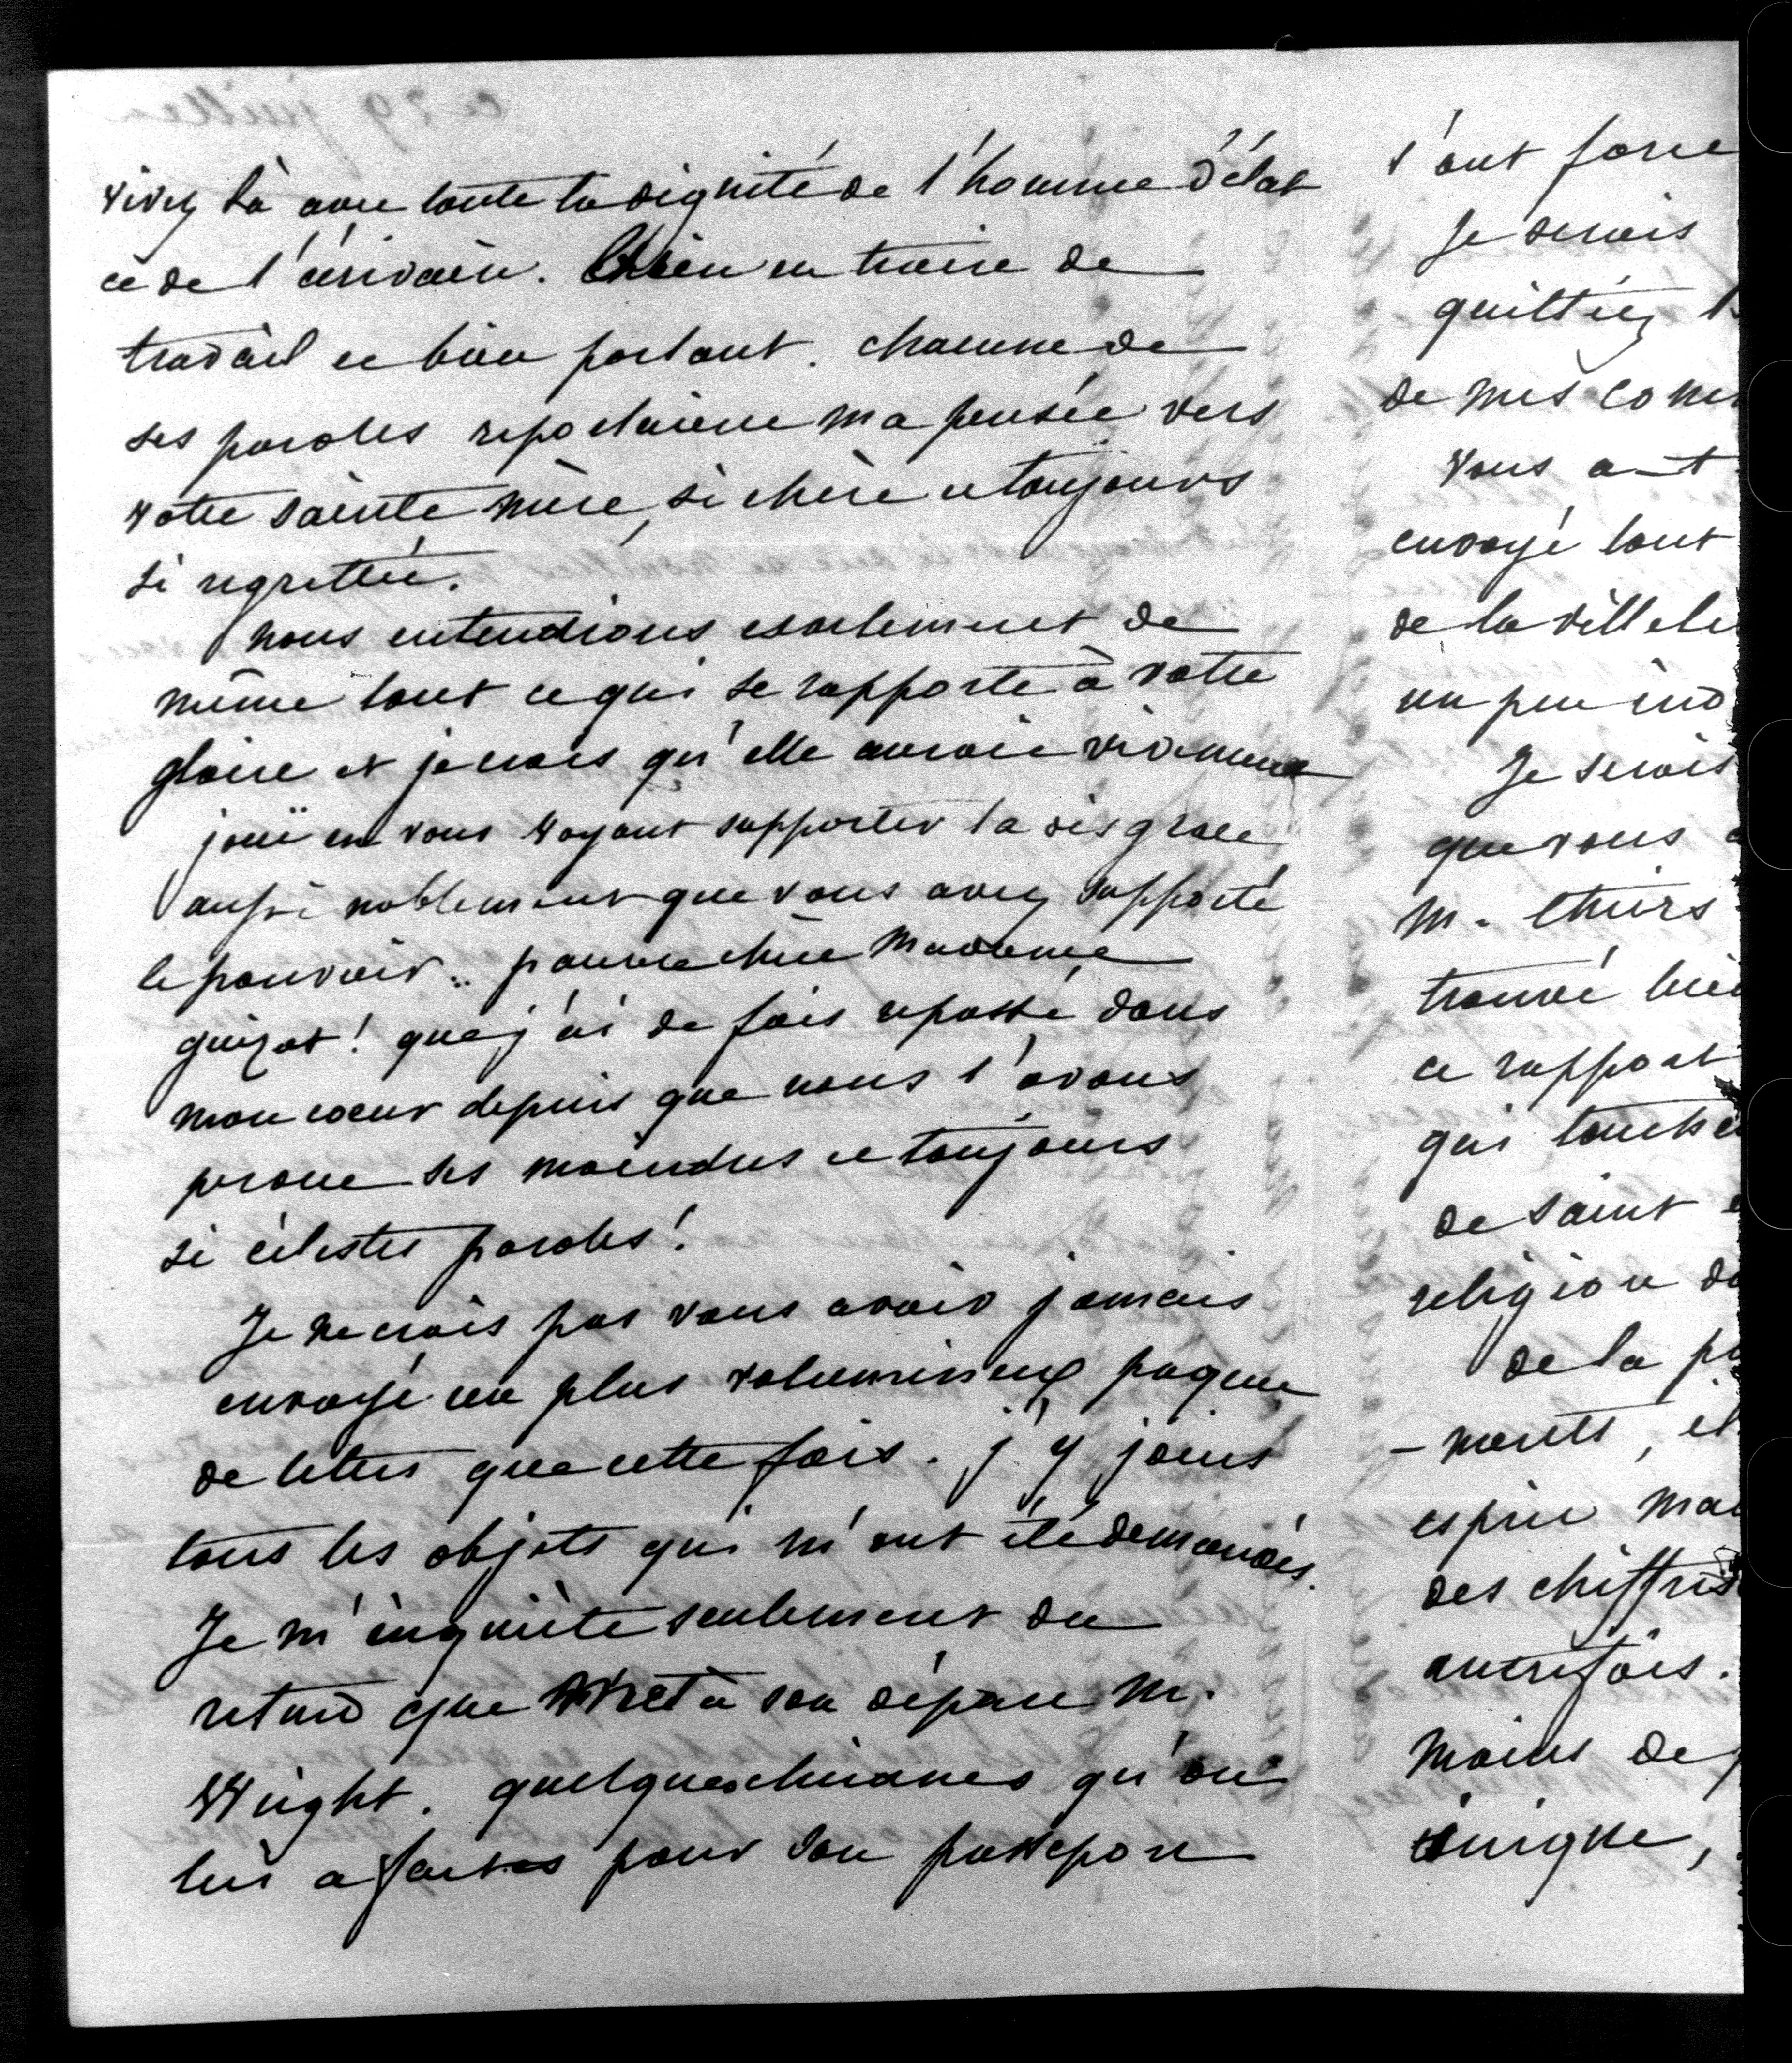 vivez là avec toute la dignité de l'homme d'état
et de l'écrivain. bien en traive de
travail et bien portant. chacune de
ses paroles reportaient ma pensée vers
votre sainte mère, si chère et toujours
si regrettée.
nous entendions exactement de
même tout ce qui se rapporte à votre
gloire et je crois qu'elle auroit vivement
jouï en vous voyant supporter la disgrace
aussi noblement que vous avez supporté
le pouvoir.. pauvre chère Madame
guizot! que j'ai de fois repassé dans
mon cœur depuis que nous l'avons
perdue ses moindres et toujours
si célestes paroles!
Je ne crois pas vous avoir jamais
envoyé un plus volumineux paquet
de lettres que cette fois. j'y joins
tous les objets qui m'ont été demandés.
Je m'inquiète seulement du
retard que met à son départ M.
Wright. quelques chicanes qu'on
lui a faites pour son passeport
l'ont force
Je serois
quittiez l
de mes com
vous a
envoyé tout
de la villele
un peu ind
Je serois
que vous a
M. thiers
trouvé bie
ce rapport
qui touche
de saint
religion d
de la p
- ments, et
esprit ma
des chiffres
autrefois.
moins de
inique,